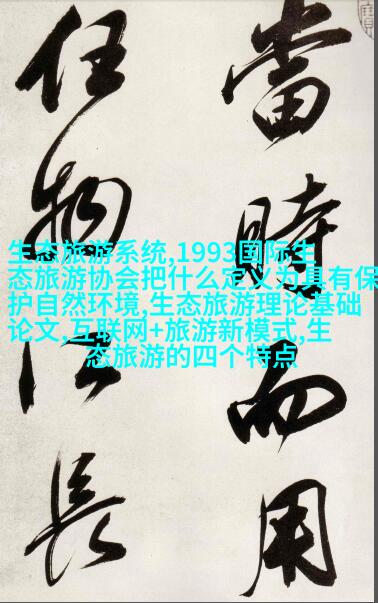 當時而用
任物以長
生态旅游系统,1993国际生
态旅游协会把什么定义为,具有保
护自然环境,生态旅游理论基础
论文,互联网+旅游新模式,生
态旅游的四个特点